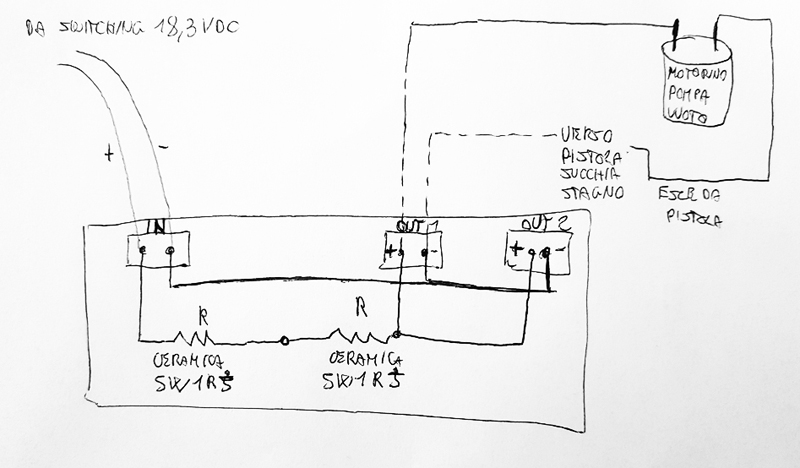 DA SWITCHING 18,3 VDC
MOTORINO
POMPA
VUOTO
+ -
VERSO
PISTOLA
SUCCHIA
STAGNO
ESCE DA
PISTOLA
IN
OUT 1
OUT 2
+ -
+ -
R
R
CERAMICA
5W/1R5
CERAMICA
5W/1R5